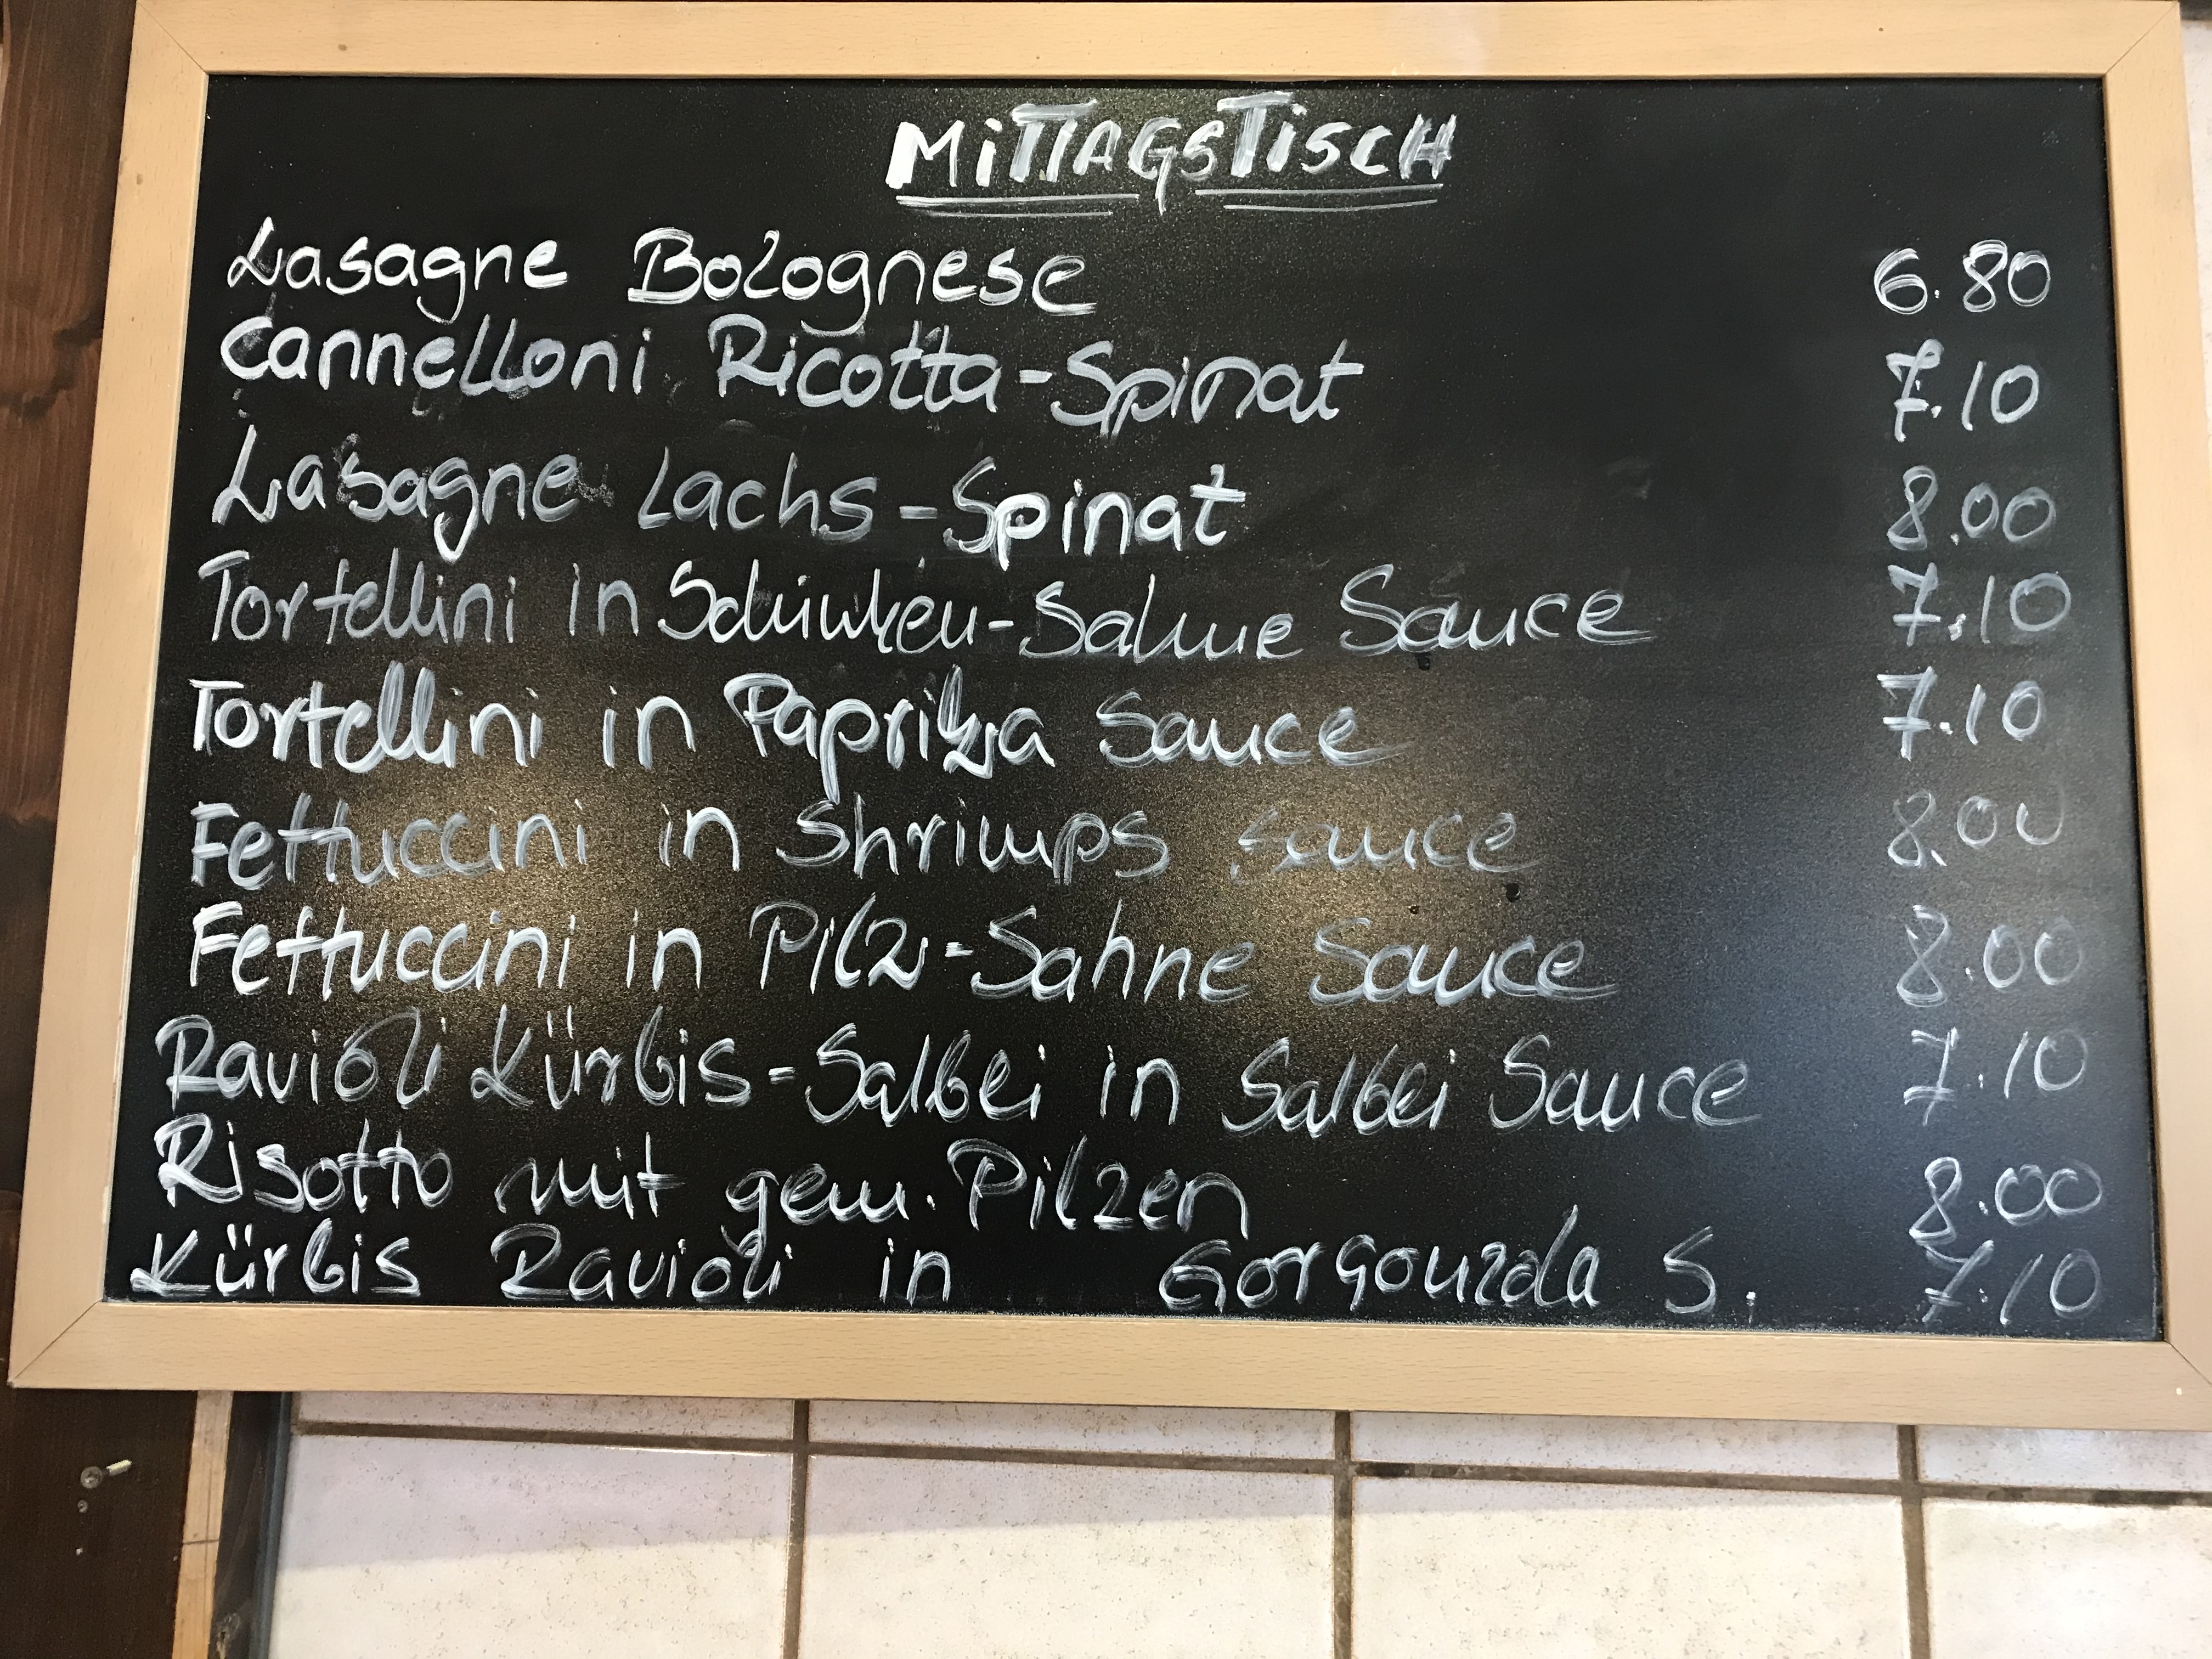 MiTTAGSTiSCH
Lasagne Bolognese 6.80
Cannelloni Ricotta-Spinat 7.10
Lasagne Lachs-Spinat 8.00
Tortellini in Schinken-Sahne Sauce 7.10
Tortellini in Paprika Sauce 7.10
Fettuccini in Shrimps Sauce 8.00
Fettuccini in Pilz-Sahne Sauce 8.00
Ravioli Kürbis-Salbei in Salbei Sauce 7.10
Risotto mit gem. Pilzen 8.00
Kürbis Ravioli in Gorgonzola S. 7.10